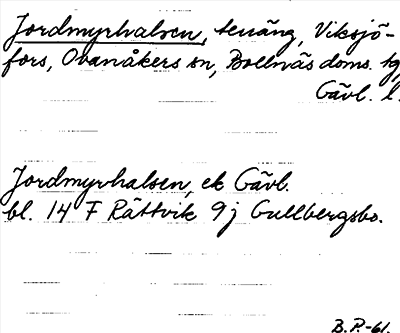 Jordmyrhalsen, tenäng, Viksjö-
fors, Ovanåkers sn, Bollnäs doms. hg,
Gävl. l.
Jordmyrhalsen, ek Gävl.
bl. 14 F Rättvik 9j Gullbergsbo.
B.P.-61.